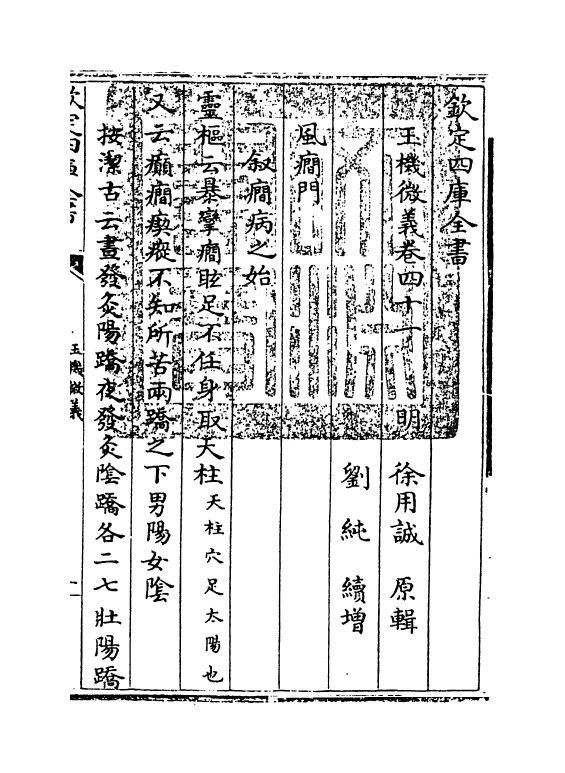 欽定四庫全書
玉機微義卷四十一　明　徐用誠　原輯
劉純　續增
風癎門
叙癎病之始
靈樞云暴攣癎眩足不任身取天柱天柱穴足太陽也
又云癲癎瘈瘲不知所苦兩蹻之下男陽女陰
按潔古云晝發灸陽蹻夜發灸陰蹻各二七壯陽蹻
玉機微義